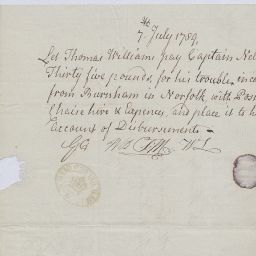 7 July 1789
Let Thomas Williams pay Captain Nel
Thirty five pounds, for his trouble in co
from Burnham in Norfolk with Post
Chaise hire & Expences, and place it to h
Account of Disbursements